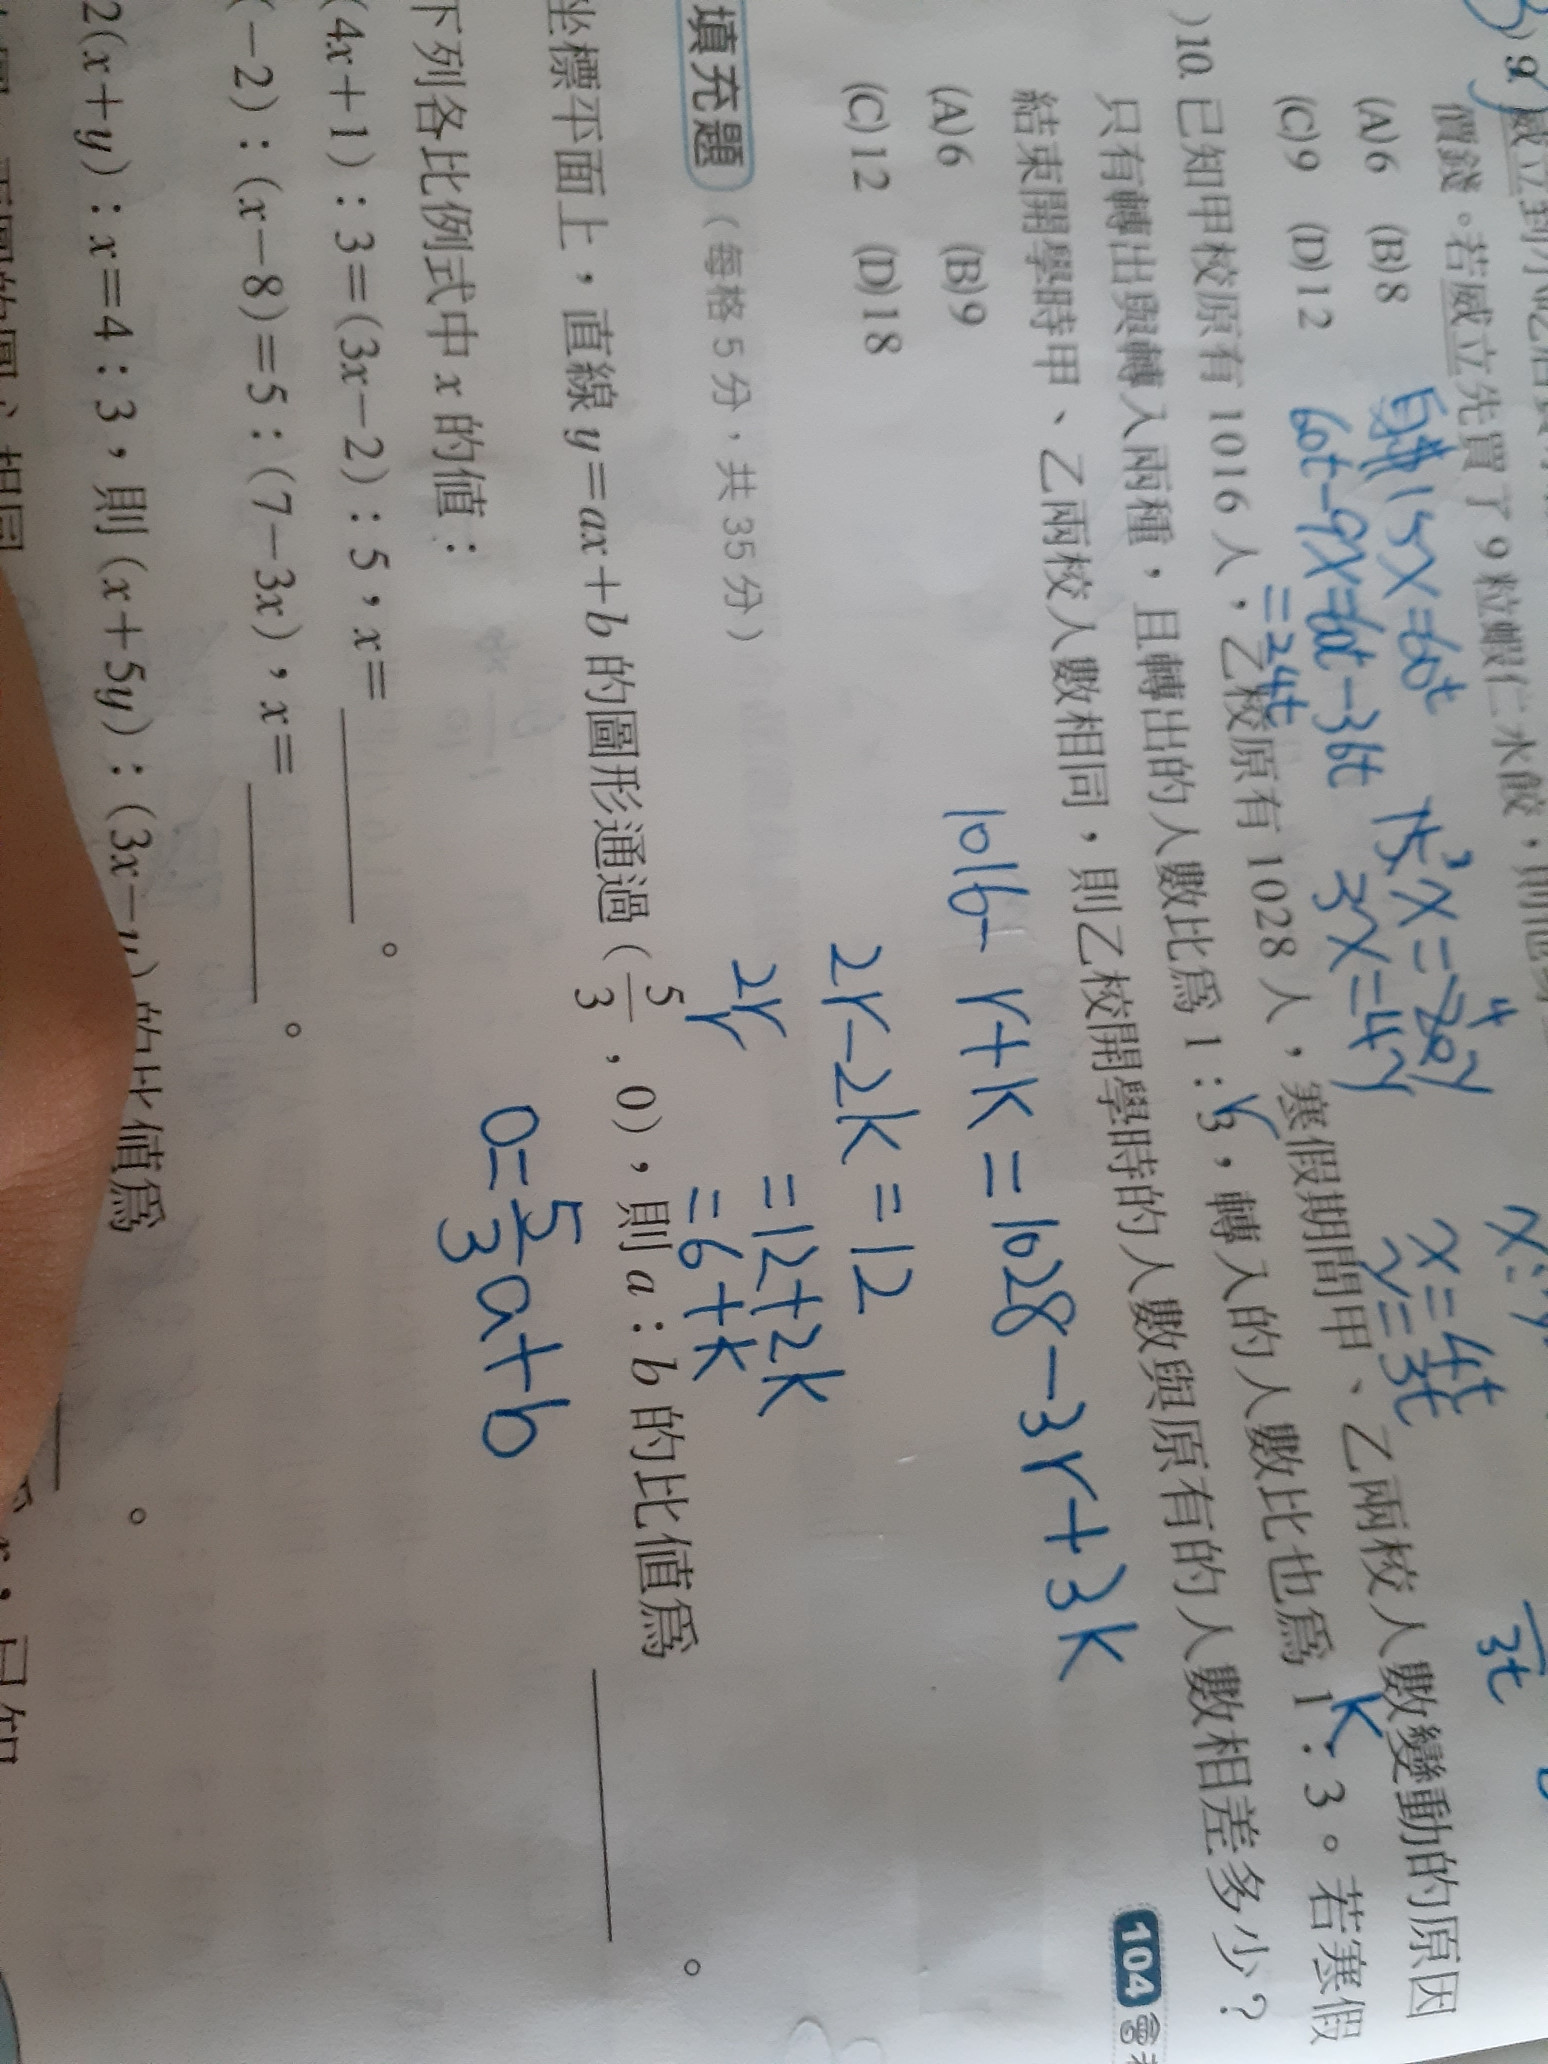 9. 威立到小吃店
價錢。若威立先買了9粒蝦仁水餃,則他
(A)6 (B)8
(C)9 (D)12
15x=60t
60t-9x=60t-36t
=24t
3x=4y
x=4t
y=3t
3t
)10. 已知甲校原有1016人,乙校原有1028人,寒假期間甲、乙兩校人數變動的原因
只有轉出與轉入兩種,且轉出的人數比為1:3,轉入的人數比也為1:3。若寒假
結束開學時甲、乙兩校人數相同,則乙校開學時的人數與原有的人數相差多少?
r
k
(A)6 (B)9
(C)12 (D)18
1016-r+k=1028-3r+3k
2r-2k=12
2r=12+2k
r=6+k
104
填充題 (每格5分,共35分)
坐標平面上,直線y=ax+b的圖形通過(5/3,0),則a:b的比值為 。
0=5/3a+b
下列各比例式中x的值:
(4x+1):3=(3x-2):5,x= 。
(-2):(x-8)=5:(7-3x),x= 。
2(x+y):x=4:3,則(x+5y):(3x-y)的比值為 。